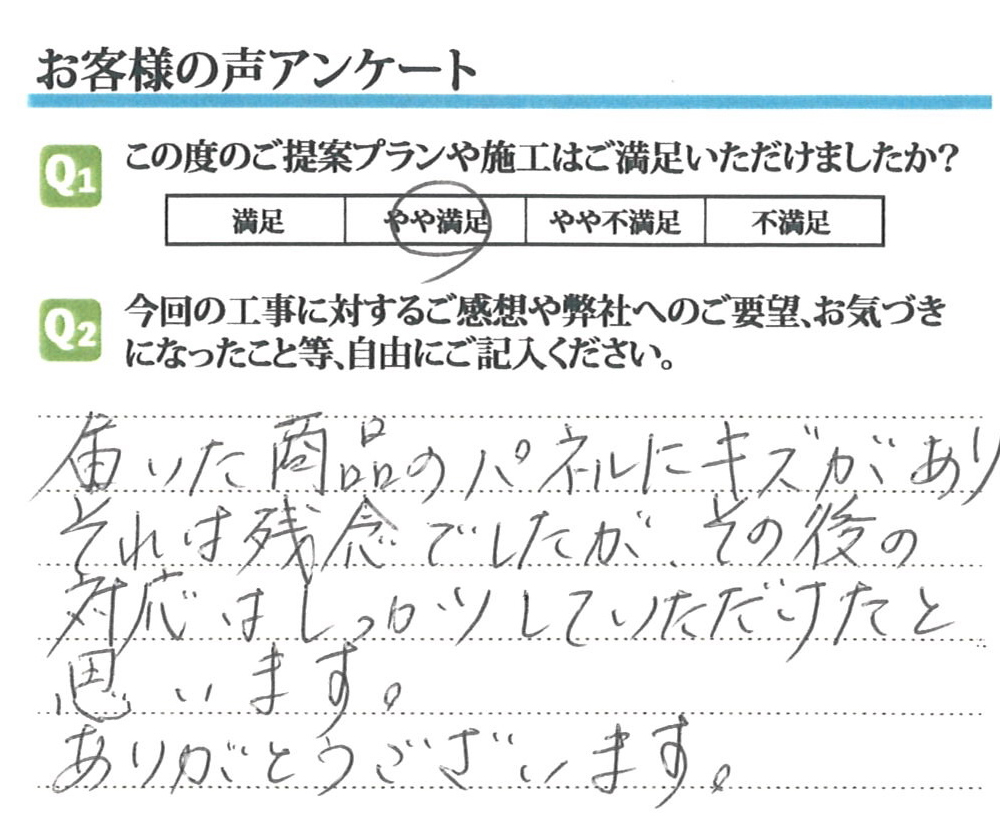 お客様の声アンケート
Q1 この度のご提案プランや施工はご満足いただけましたか?
満足 やや満足 やや不満足 不満足
Q2 今回の工事に対するご感想や弊社へのご要望、お気づき
になったこと等、自由にご記入ください。
届いた商品のパネルにキズがあり
それは残念でしたが、その後の
対応はしっかりしていただけたと
思います。
ありがとうございます。